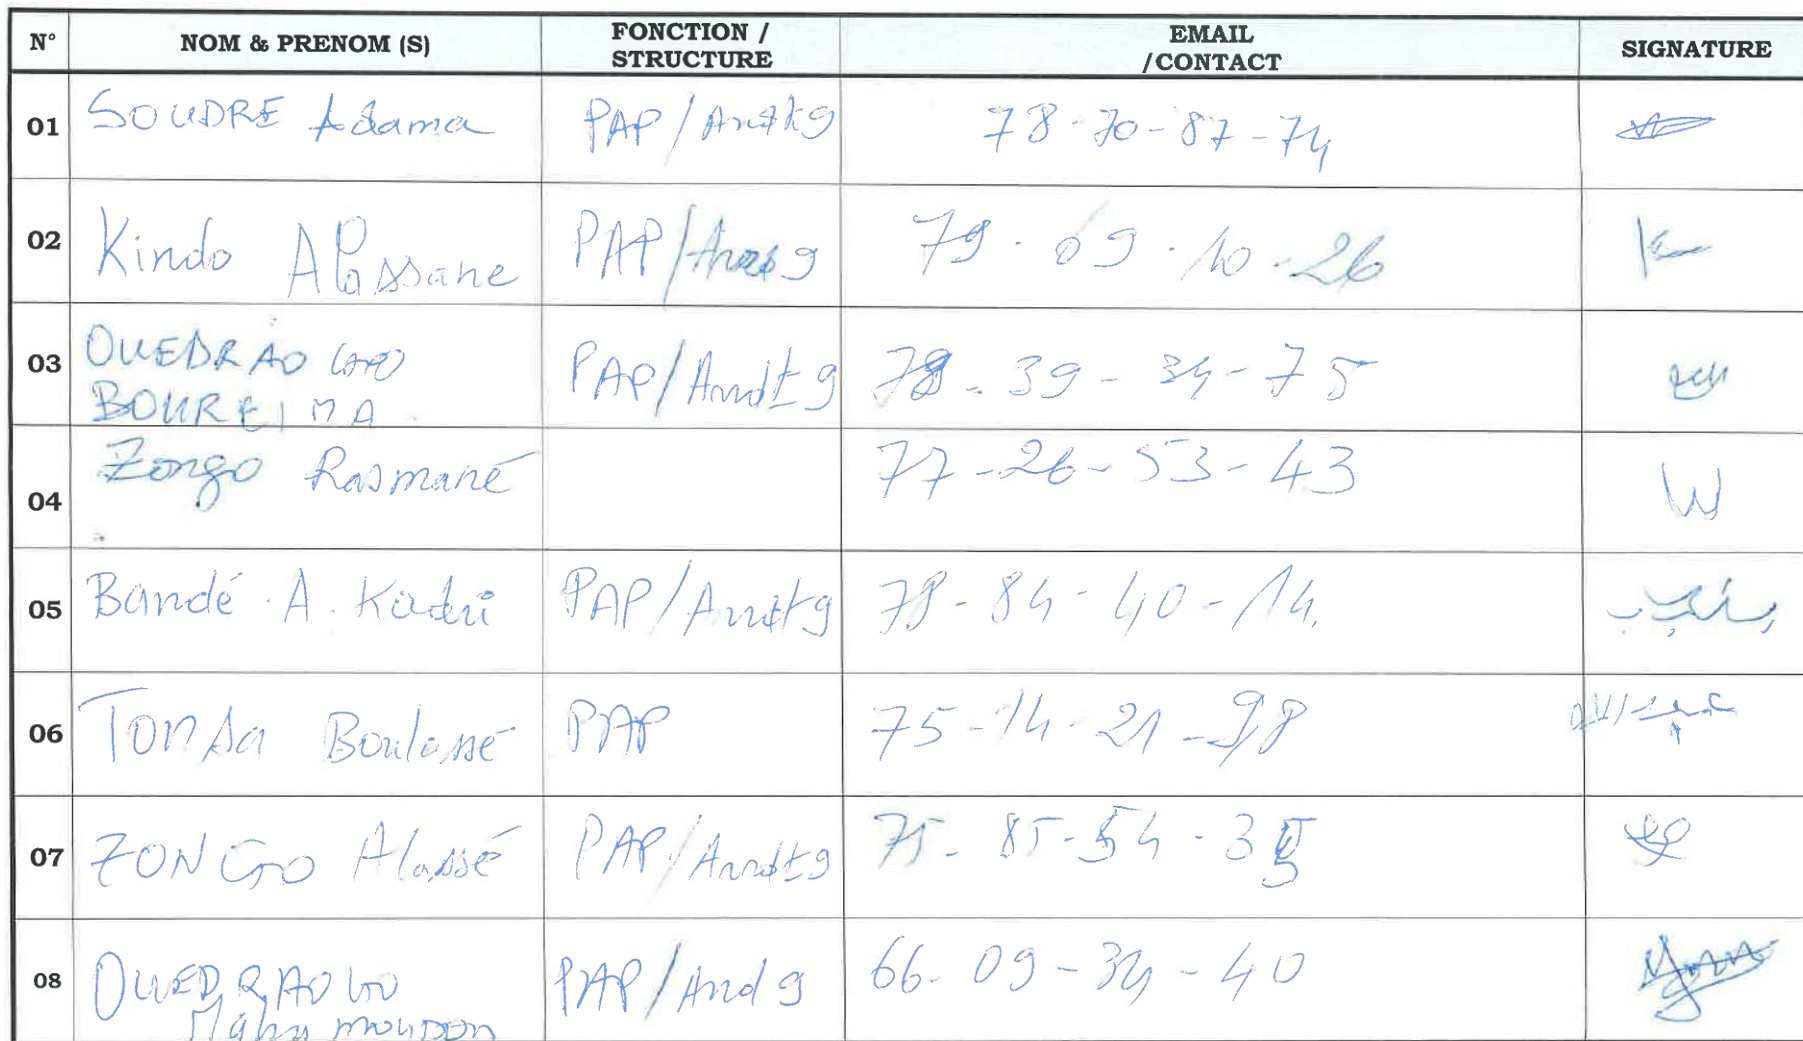 N° NOM & PRENOM (S) FONCTION / STRUCTURE EMAIL /CONTACT SIGNATURE
01 SOUDRE Adama PAP/Arrdt 9 78-70-87-74
02 Kindo Alassane PAP/ 9 79.09.10.26
03 OUEDRAOGO PAP/Arrdt 9 78-39-34-75
BOUREIMA
04 Zongo Rasmané 77-26-53-43
05 Bandé A. Kadri PAP/Arrdt 9 78-84-40-14
06 TONDA Boulassé PAP 75-14-21-98
07 ZONGO Alassé PAP/Arrdt 9 75-85-54-35
08 OUEDRAOGO PAP/Arrd 9 66-09-34-40
Mahamoudou